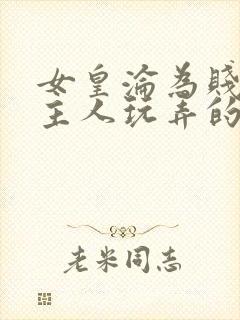 女皇淪為賤
主人玩弄的
老米同志